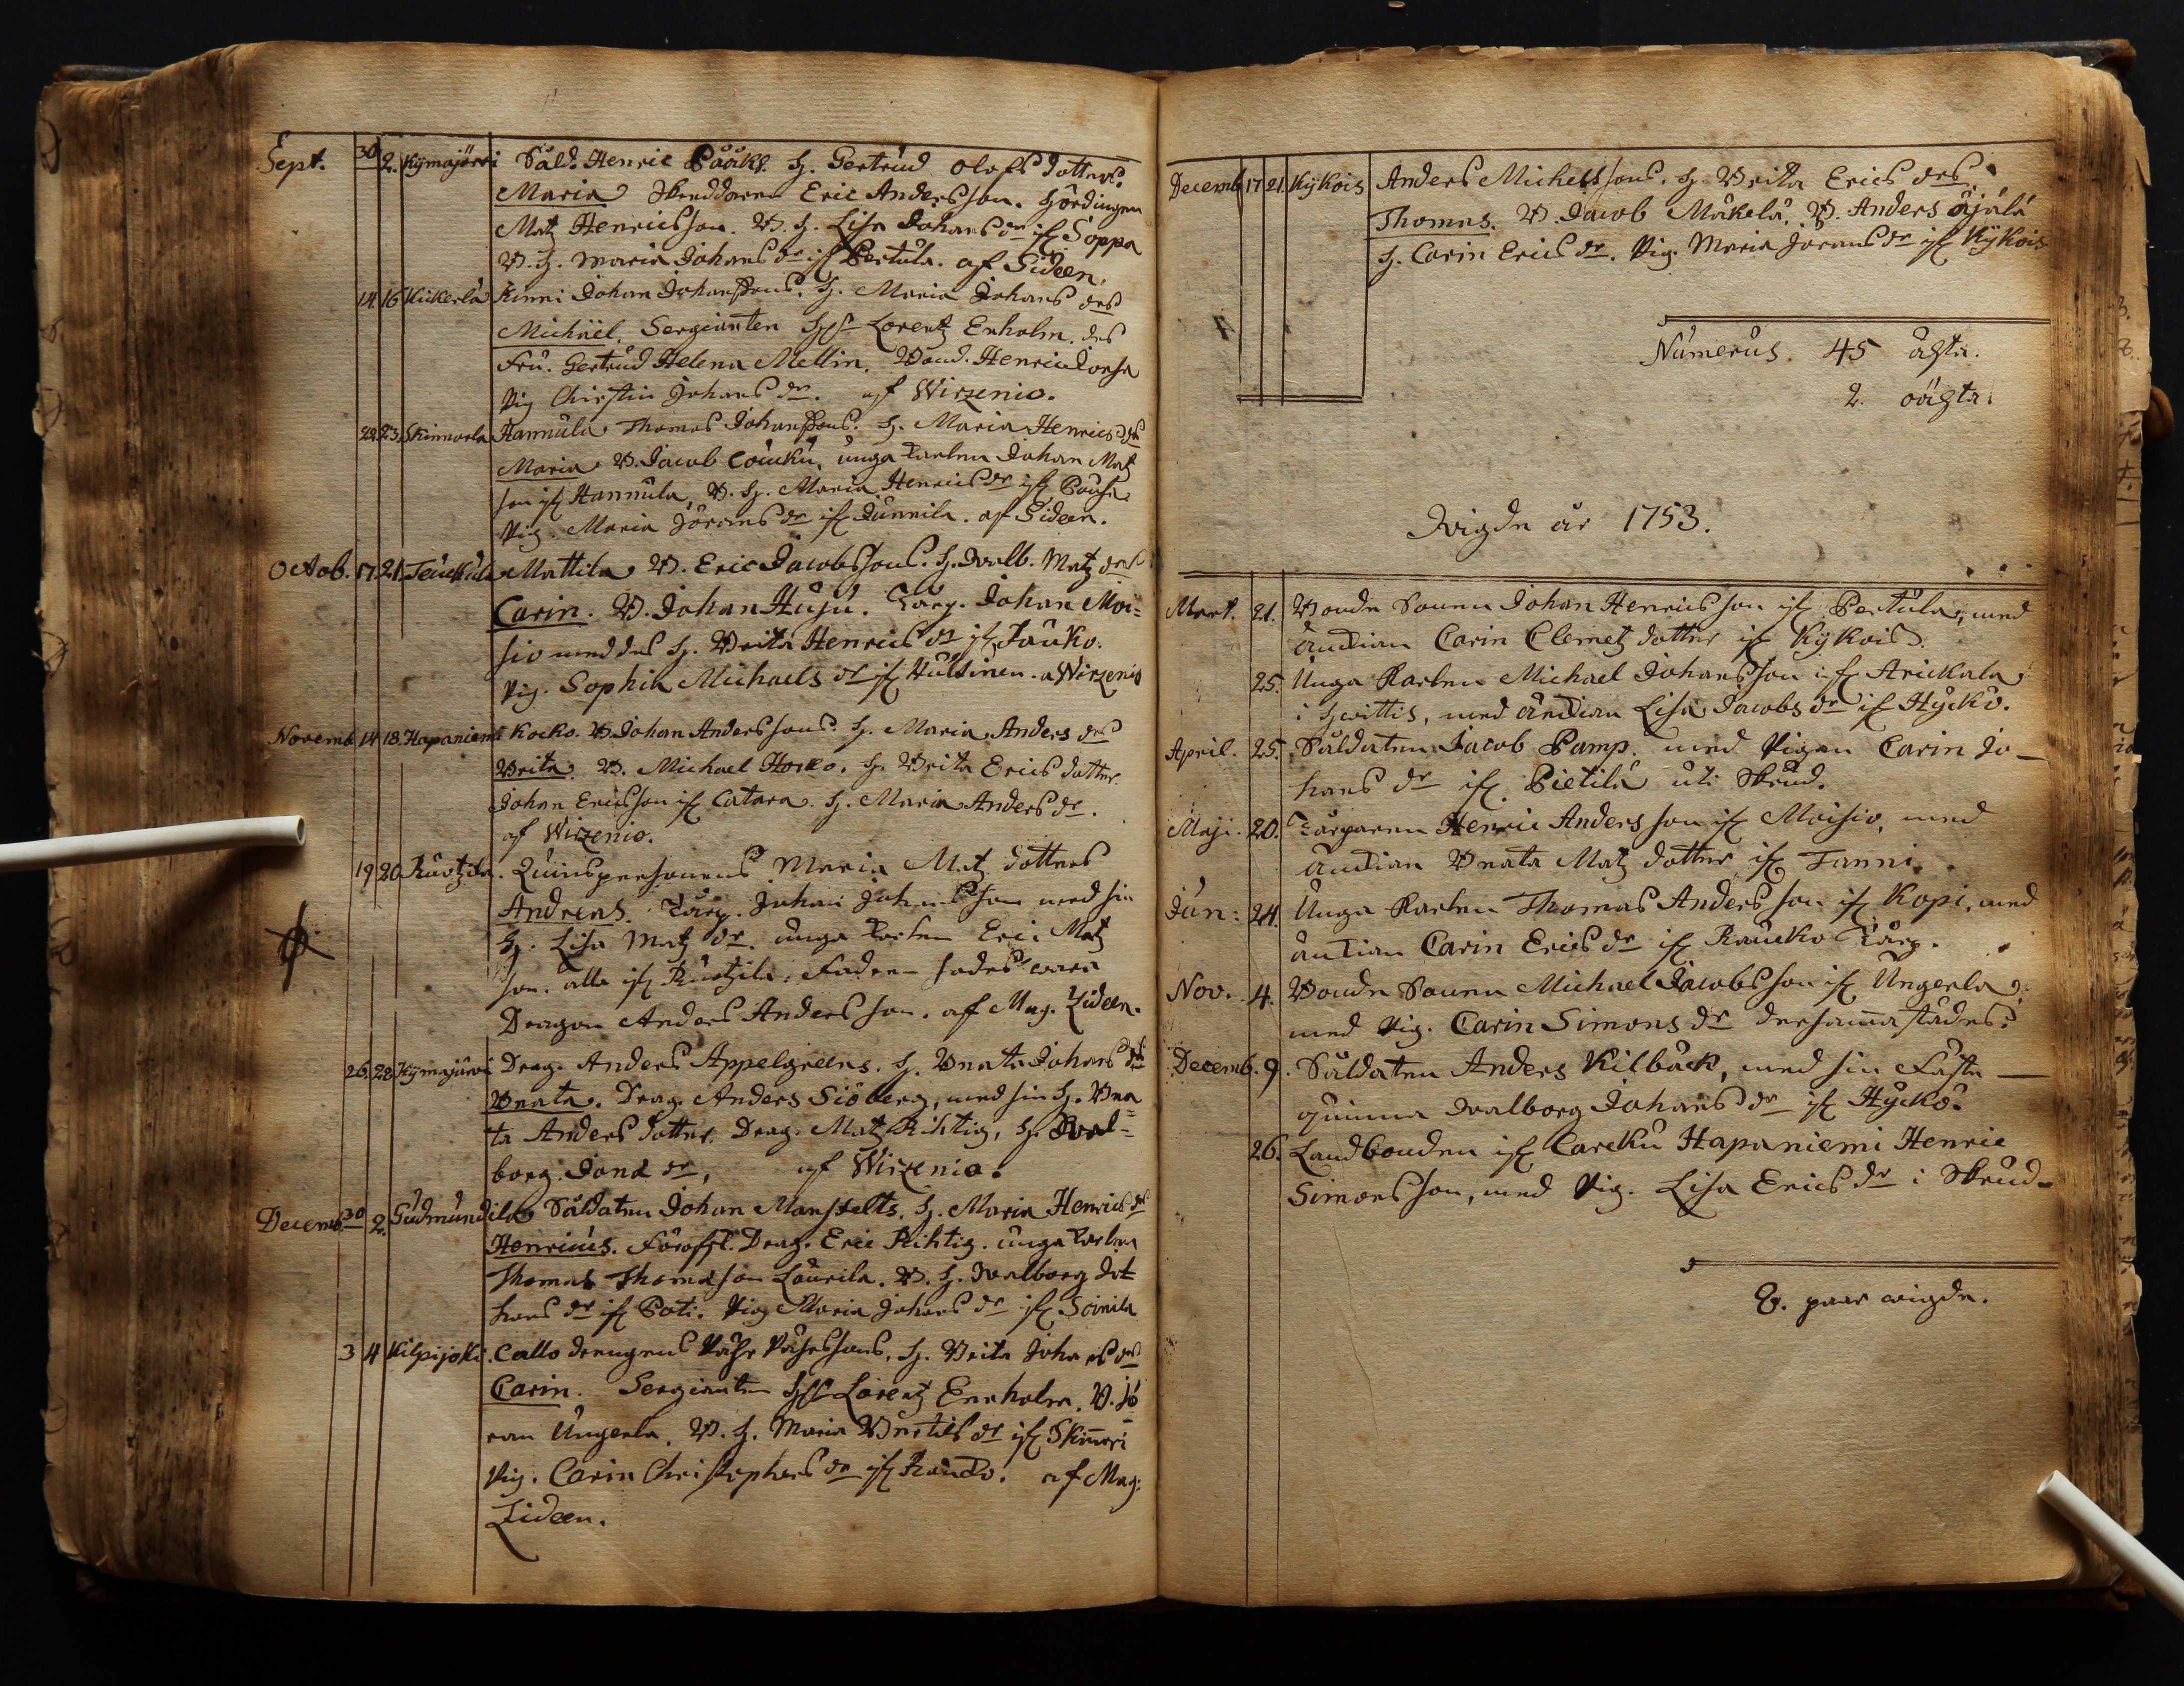 Sept. 30 2. Kÿmajärvi Sold. Henric Pååks. H. Gertrud Olofs dotters
Maria Skreddaren Eric Andersson. Hördingen
Matz Henricsson. B. H. Lisa Johans dr ifr Soppa
B. H. Maria Johans dr ifr Pertula. af Lideen.
14. 16 Kickerlä Kinni Johan Johanssons. H. Maria Johans drs
Michäel. Sergianten Hr Lorentz Enholm. des
Fru. Gertrud Helena Mellin. Bond. Henric
Pig Christin Johans dr. af Wirzenio.
22. 23. Skinnarla Hannula Thomas Johanssons. H. Maria Henrics drs
Maria B. Jacob Coucku, unga Karlen Johan Matz
son ifr Hannula, B. H. Maria Henrics dr ifr Pousa
Pig. Maria Jörans dr ifr Junnila. af Lideen.
Octob. 17. 21. Teuckula Mattila B. Eric Jacobssons. H. Walb. Matz drs
Carin. B. Johan Huju. Torp. Johan Moi=
sio med des H. Brita Henrics dr ifr Jauko.
Pig. Sophia Michaels dr ifr Hultinen. a Wirzenio
Novemb 14 18. Hapaniemi Kocko. B. Johan Anderssons. H. Maria Anders drs
Brita. B. Michael Horko. H. Brita Erics dotter
Johan Ericsson ifr Catara. H. Maria Anders dr.
af Wirzenio.
19 20 Ruotzila. Quinspersonens Maria Matz dotters
Andreas. Torp. Johan Johansson med sin
H. Lisa Matz dr. unga Karlen Eric Matz
son. alla ifr Ruotzila. Fadren sades wara
Dragon Anders Andersson. af Mag. Lideen.
26. 28 Kÿmajärvi Drag. Anders Appelgreens. H. Beata Johans drs
Beata. Drag. Anders Siöberg, med sin H. Bea
ta Anders dotter. Drag. Matz Richtig, H. Wal=
borg Jonæ dr, af Wirzenio.
Decemb. 30 2. Gudmundila Soldaten Johan Manfelts. H. Maria Henrics drs
Henricus. Drag. Eric Richtig. unga Karlen
Thomas Thomasson Laurila. B. H. Walborg Jo=
hans dr ifr Poti. Pig Maria Johans dr ifr Soinila
3 4 Kilpijoki. Callo drengens H. Brita Johans drs
Carin. Sergianten Hr Lorentz Eneholm. B. Jö
ran Ungerla. B. H. Maria Bertils dr ifr Skinnari
Pig. Carin Christophers dr ifr Raucko. af Mag:
Lideen.
Decemb 17 21. Kÿkois Anders Michelssons, H Brita Erics drs
Thomas. B. Jacob Mäkelä. B. Anders Äjälä
H. Carin Erics dr. Pig. Maria Jörans dr ifr Kÿkois
Numerus. 45 ägta.
2. oägta.
Wigde år 1753.
Mart. 21. Bonde Sonen Johan Henricsson ifr Pertula, med
änckian Carin Clemetz dotter ifr Kÿkois.
25. Unga Karlen Michael Johansson ifr Arickala
i Hwittis, med änckian Lisa Jacobs dr ifr Hyckö.
April. 25. Soldaten Jacob Pamp. med Pigan Carin Jo-
hans dr ifr Pietilä uti Skrud.
Maji. 20. Torparen Henric Andersson ifr Moisio, med
änckian Beata Matz dotter ifr Tanni.
Jun: 24. Unga Karlen Thomas Andersson ifr Kopi, med
änckian Carin Erics dr ifr Raucko Torp.
Nov. 4. Bonde Sonen Michael Jacobsson ifr Ungerla
med Pig. Carin Simons dr dersammastädes.
Decemb. 9. Soldaten Anders Kilback, med sin Fäste
quinna Walborg Johans dr ifr Hyckö.
26. Landbonden ifr Carcku Hapaniemi Henric
Simonsson, med Pig. Lisa Erics dr i Skrud.
8. paar wigde.